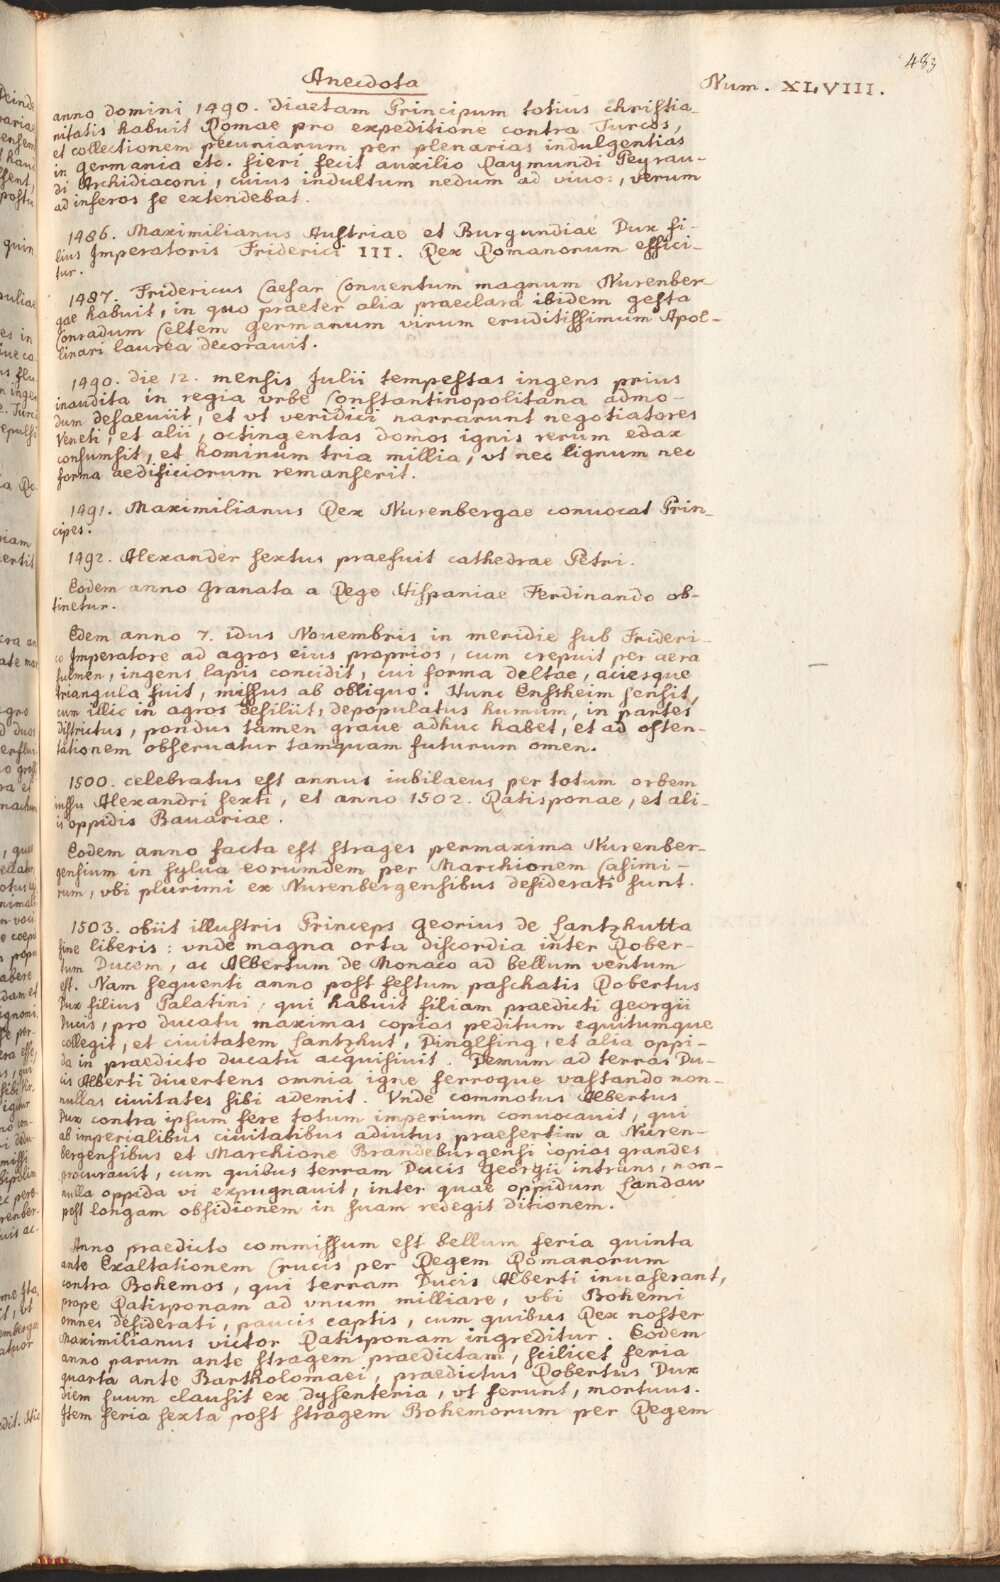 483
Anecdota
Num. XLVIII.
anno domini 1490. Diaetam Principum totius christia-
nitatis habuit Romae pro expeditione contra Turcos,
et collectionem pecuniarum per plenarias indulgentias
in germania etc. fieri fecit auxilio Raymundi Peyrau-
di Archidiaconi, cuius indultum nedum ad viuo:, verum
ad inferos se extendebat.
1486. Maximilianus Austriae et Burgundiae Dux fi-
lius Imperatoris Friderici III. Rex Romanorum effici-
tur.
1487. Fridericus Caesar Conuentum magnum Nurenber-
gae habuit, in quo praeter alia praeclara ibidem gesta
Conradum Celtem germanum virum eruditissimum Apol-
linari laurea decorauit.
1490. die 12. mensis Julii tempestas ingens prius
inaudita in regia vrbe Constantinopolitana admo-
dum desaeuiit, et vt veridici narrarunt negotiatores
Veneti, et alii, octingentas domos ignis rerum edax
consumsit, et hominum tria millia, vt nec lignum nec
forma aedificiorum remanserit.
1491. Maximilianus Rex Nurenbergae conuocat Prin-
cipes.
1492. Alexander sextus praefuit cathedrae Petri.
Eodem anno Granata a Rege Hispaniae Ferdinando ob-
tinetur.
Edem anno 7. idus Nouembris in meridie sub Frideri-
co Imperatore ad agros eius proprios, cum crepuit per aera
fulmen, ingens lapis concidit, cui forma deltae, aciesque
triangula fuit, missus ab obliquo. Hunc Ensheim sensit,
cum illic in agros desiliit, depopulatus humum, in partes
districtus, pondus tamen graue adhuc habet, et ad osten-
tationem obseruatur tamquam futurum omen.
1500. celebratus est annus iubilaeus per totum orbem
iussu Alexandri sexti, et anno 1502. Ratisponae, et ali-
is oppidis Bauariae.
Eodem anno facta est strages permaxima Nurenber-
gensium in sylua eorumdem per Marchionem Casimi-
rum, vbi plurimi ex Nurenbergensibus desiderati sunt.
1503. obiit illustris Princeps georius de Lantzhutta
sine liberis: vnde magna orta discordia inter Rober-
tum Ducem, ac Albertum de Monaco ad bellum ventum
est. Nam sequenti anno post festum paschatis Robertus
Dux filius Palatini, qui habuit filiam praedicti georgii
Ducis, pro ducatu maximas copias peditum equitumque
collegit, et ciuitatem Lantzhut, Dinglfing, et alia oppi-
da in praedicto ducatu acquisiuit. Demum ad terras Du-
cis Alberti diuertens omnia igne ferroque vastando non-
nullas ciuitates sibi ademit. Vnde commotus Albertus
Dux contra ipsum fere totum imperium conuocauit, qui
ab imperialibus ciuitatibus adiutus praesertim a Nuren-
bergensibus et Marchione Brandeburgensi copias grandes
procurauit, cum quibus terram Ducis georgii intrans, non-
nulla oppida vi expugnauit, inter quae oppidum Landau
post longam obsidionem in suam redegit ditionem.
Anno praedicto commissum est bellum feria quinta
ante Exaltationem Crucis per Regem Romanorum
contra Bohemos, qui terram Ducis Alberti inuaserant,
prope Ratisponam ad vnum milliare, vbi Bohemi
omnes desiderati, paucis captis, cum quibus Rex noster
Maximilianus victor Ratisponam ingreditur. Eodem
anno parum ante stragem praedictam, scilicet feria
quarta ante Bartholomaei, praedictus Robertus Dux
diem suum clausit ex dysenteria, vt ferunt, mortuus.
Item feria sexta post stragem Bohemorum per Regem